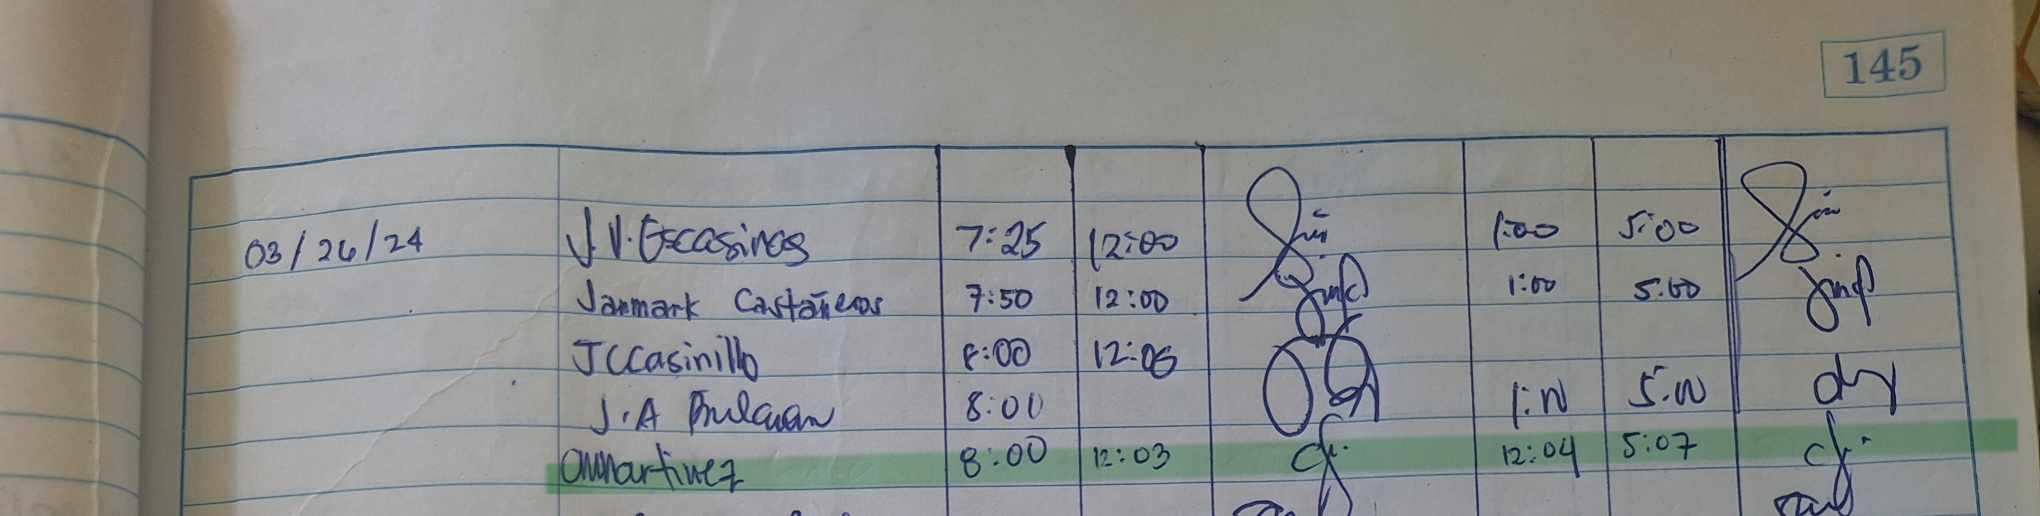 145
03/26/24 J.V. Escasinas 7:25 12:00 1:00 5:00
Janmark Castañeros 7:50 12:00 1:00 5:00
JCCasinillo 8:00 12:05
J.A Bulawan 8:00 1:00 5:00
8:00 12:03 12:04 5:07